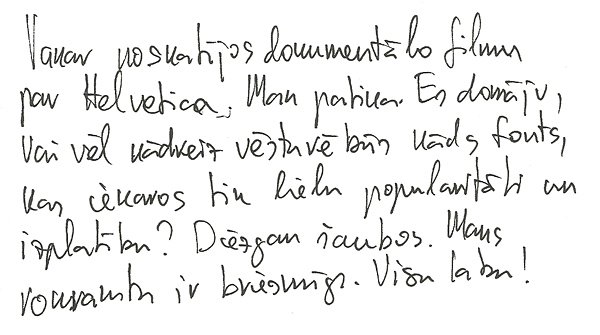 Vakar noskatījos dokumentālo filmu
par Helvetica. Man patika. Es domāju,
vai vēl kādreiz vēsturē būs kāds fonts,
kas iekaros tik lielu popularitāti un
izplatību? Diezgan šaubos. Mans
rokraksts ir briesmīgs. Visu labu!